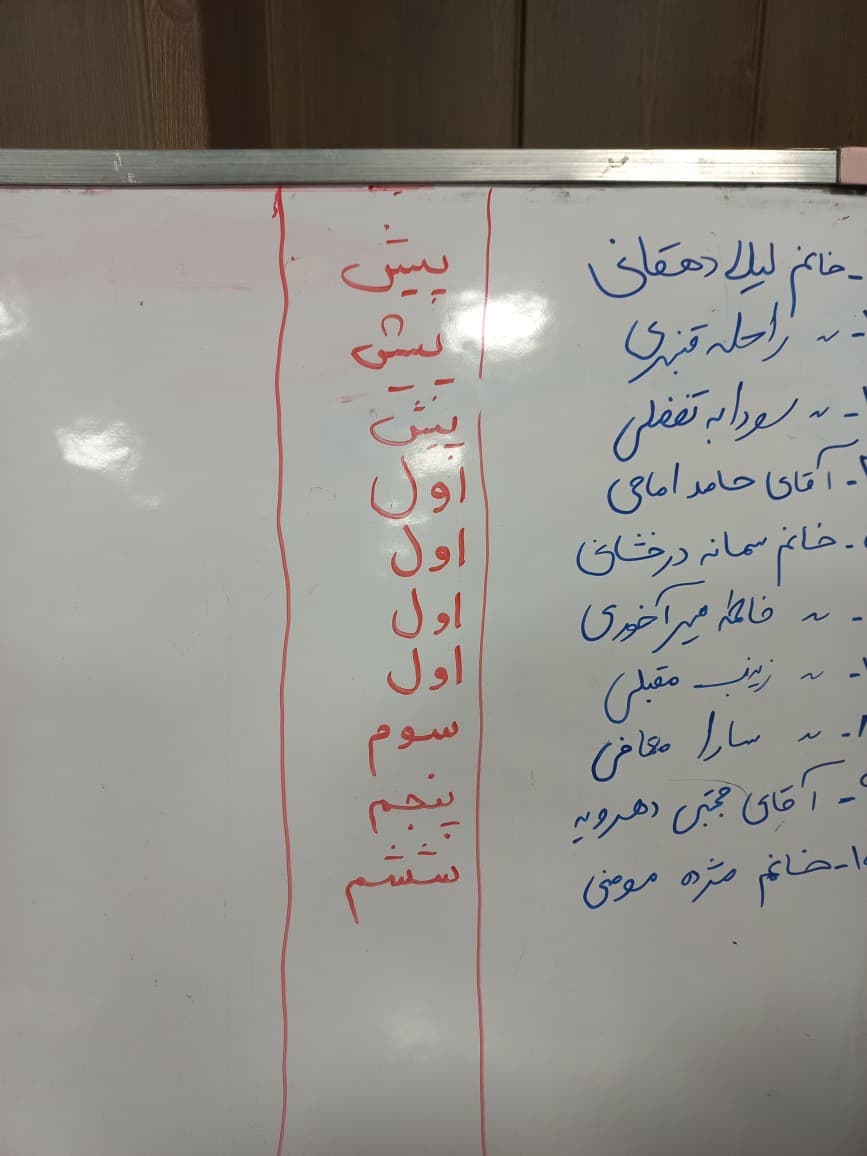 - خانم لیلا دهقانی پیش
- ~ راحله قنبری پیش
- ~ سودابه تفضلی پیش
- آقای حامد امامی اول
- خانم سمانه درخشانی اول
- ~ فاطمه میرآخوری اول
- ~ زینب مقبلی اول
۸- ~ سارا معافی سوم
۹- آقای مجتبی دهرویه پنجم
۱۰- خانم مژده مومنی ششم